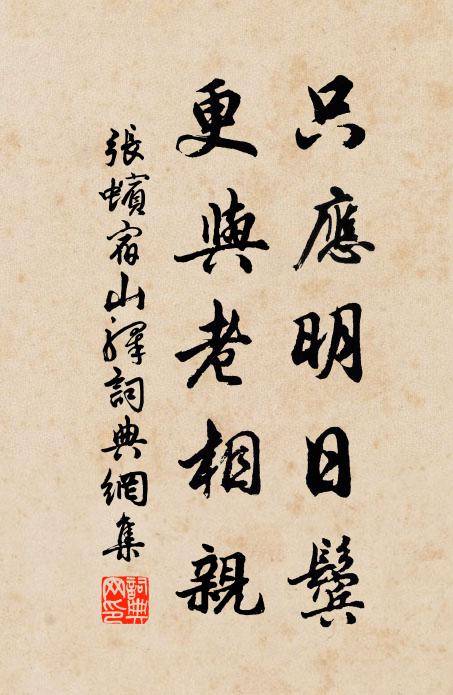 只應明日鬢
更與老相親
張蠙宿山驛詞典網集
詞典網印